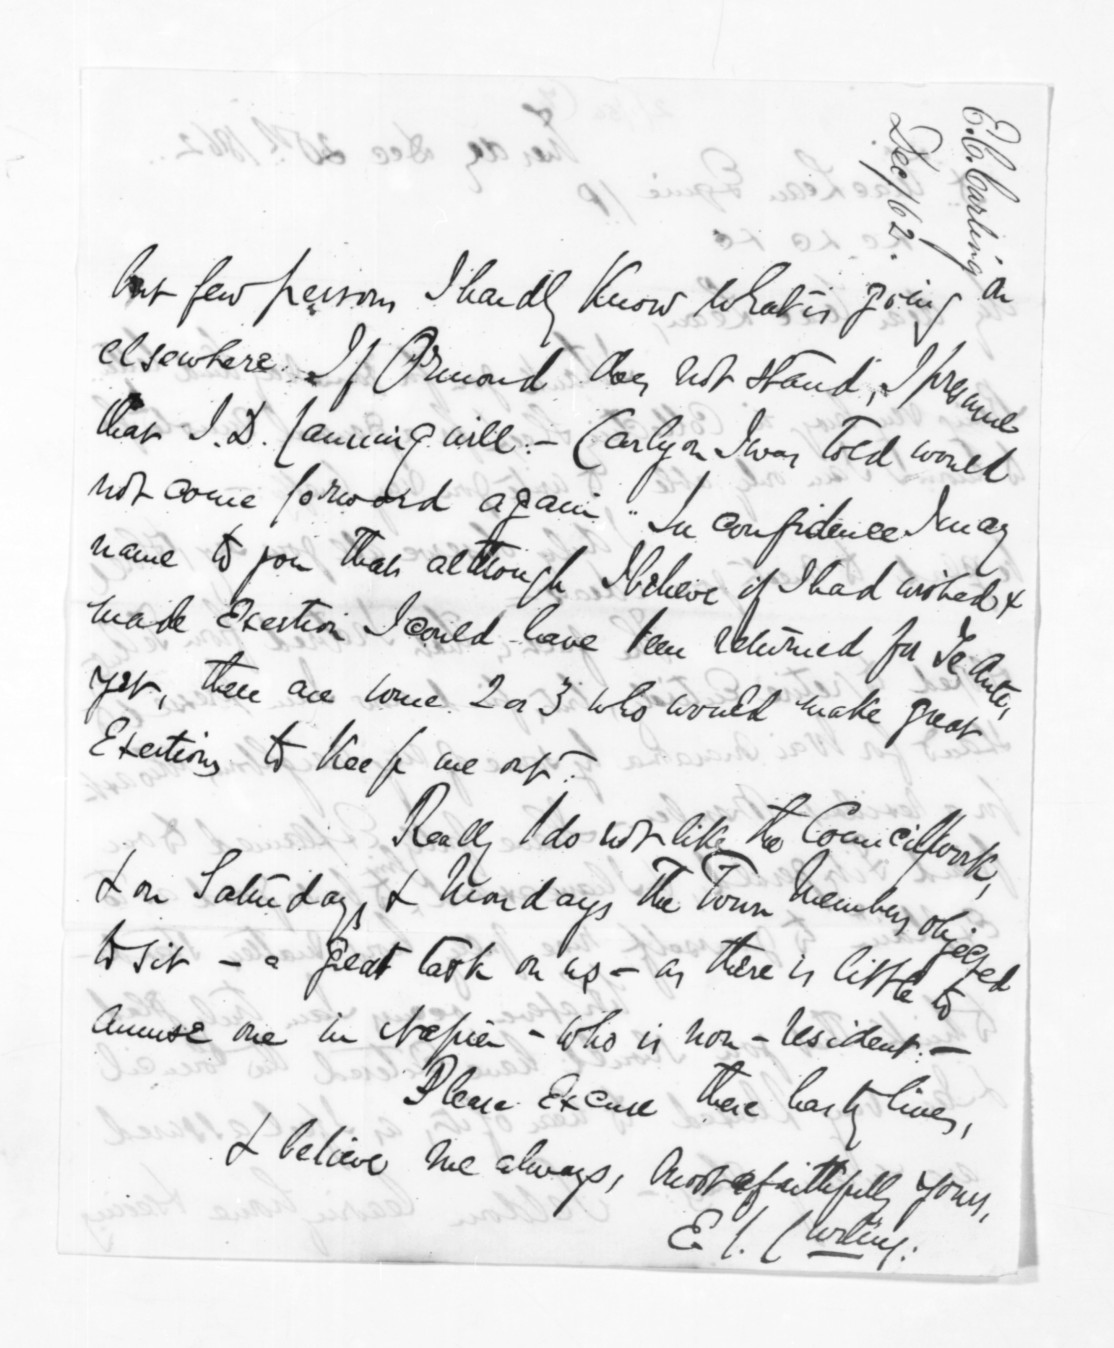 E.S. Curling
Dec/62.
but few persons I hardly Know what is going on
elsewhere. If Ormond does not stand, I presume
that J.D. Canning will. – Carlyon I was told would
not come forward again. In confidence I may
name to you that although I believe if I had wished &
made Exertion I could have been returned for Te Aute,
yet, there are some 2 or 3 who would make great
Exertions to Keep me out.
Really I do not like the Council Work,
& on Saturdays & Mondays the Town Members objected
to sit – a great task on us – as there is little to
amuse one in Napier – who is non-resident. –
Please Excuse these hasty lines,
& believe me always, most faithfully yours,
E S. Curling.